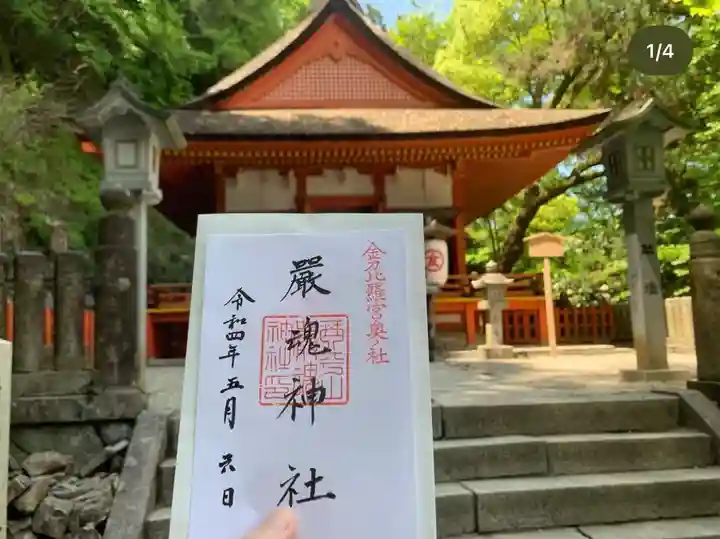 1/4
金刀比羅宮奥社
嚴魂神社
令和四年五月六日